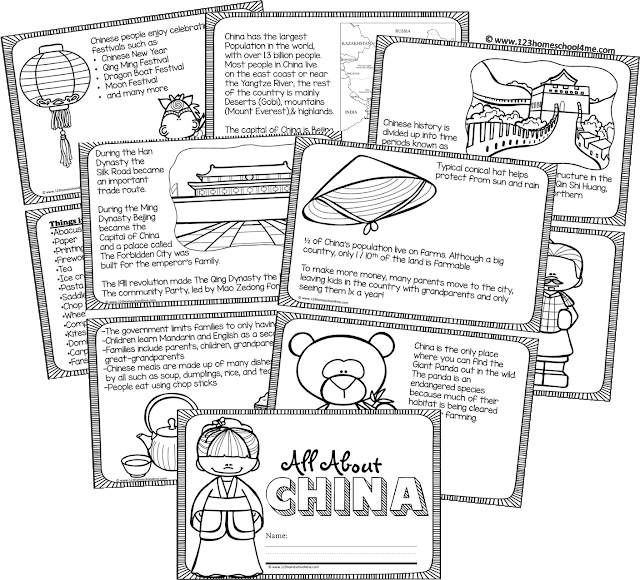 Chinese people enjoy celebrat
festivals such as:
• Chinese New Year
• Qing Ming Festival
• Dragon Boat Festival
• Moon Festival
• and many more
China has the largest
Population in the world,
with over 1.3 billion people.
Most people in China live
on the east coast or near
the Yangtze River, the rest
of the country is mainly
Deserts (Gobi), mountains
(Mount Everest),& highlands.
The capital of China is Beijin
RUSSIA
KAZAKHSTAN
INDIA
© www.123homeschool4me.com
Chinese history is
divided up into time
periods known as
structure in the
Qin Shi Huang,
orthern
During the Han
Dynasty the
Silk Road became
an important
trade route.
During the Ming
Dynasty Beijing
became the
Capital of China
and a palace called
The Forbidden City was
built for the emperor's family.
The 1911 revolution made The Qing Dynasty the
The community Party, led by Mao Zedong for
Typical conical hat helps
protect from sun and rain
½ of China's population live on farms. Although a big
country, only 1 / 10th of the land is farmable
To make more money, many parents move to the city,
leaving kids in the country with grandparents and only
seeing them 1x a year!
© www.123homeschool4me.com
Things i
•Abacus
•Paper
•Printing
•Firewor
•Tea
•Ice cr
•Pasta
•Saddl
•Chop
•Whee
•Comp
•Kites
•Domi
•Card
•Fans
-The government limits families to only having
-Children learn Mandarin and English as a seco
-Families include parents, children, grandparen
great-grandparents
-Chinese meals are made up of many dishes
by all such as soup, dumplings, rice, and tea
-People eat using chop sticks
China is the only place
where you can find the
Giant Panda out in the wild.
The panda is an
endangered species
because much of their
habitat is being cleared
farming.
All About
CHINA
Name:
© www.123homeschool4me.com